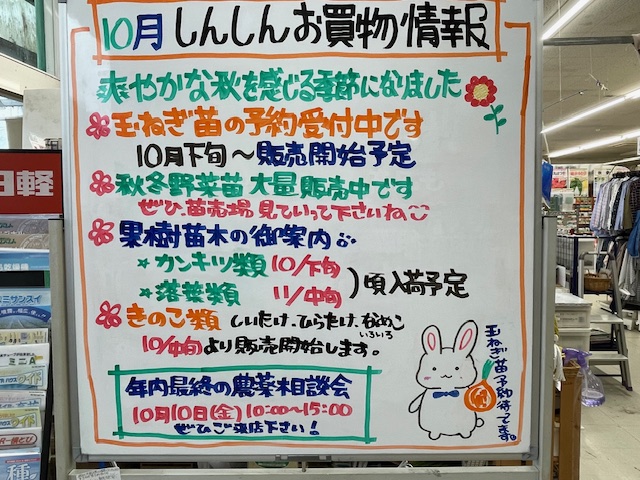 10月 しんしんお買物情報
爽やかな秋を感じる季節になりました
玉ねぎ苗の予約受付中です
10月下旬～販売開始予定
秋冬野菜苗大量販売中です
ぜひ、苗売場 見ていって下さいね
果樹苗木の御案内
★カンキツ類 10/下旬
★落葉類 11/中旬
)頃入荷予定
きのこ類 しいたけ、ひらたけ、なめこ
いろいろ
10/中旬より販売開始します。
年内最終の農薬相談会
10月10日(金) 10:00〜15:00
ぜひご来店下さい!
玉ねぎ苗予約待ってます。
日軽
種